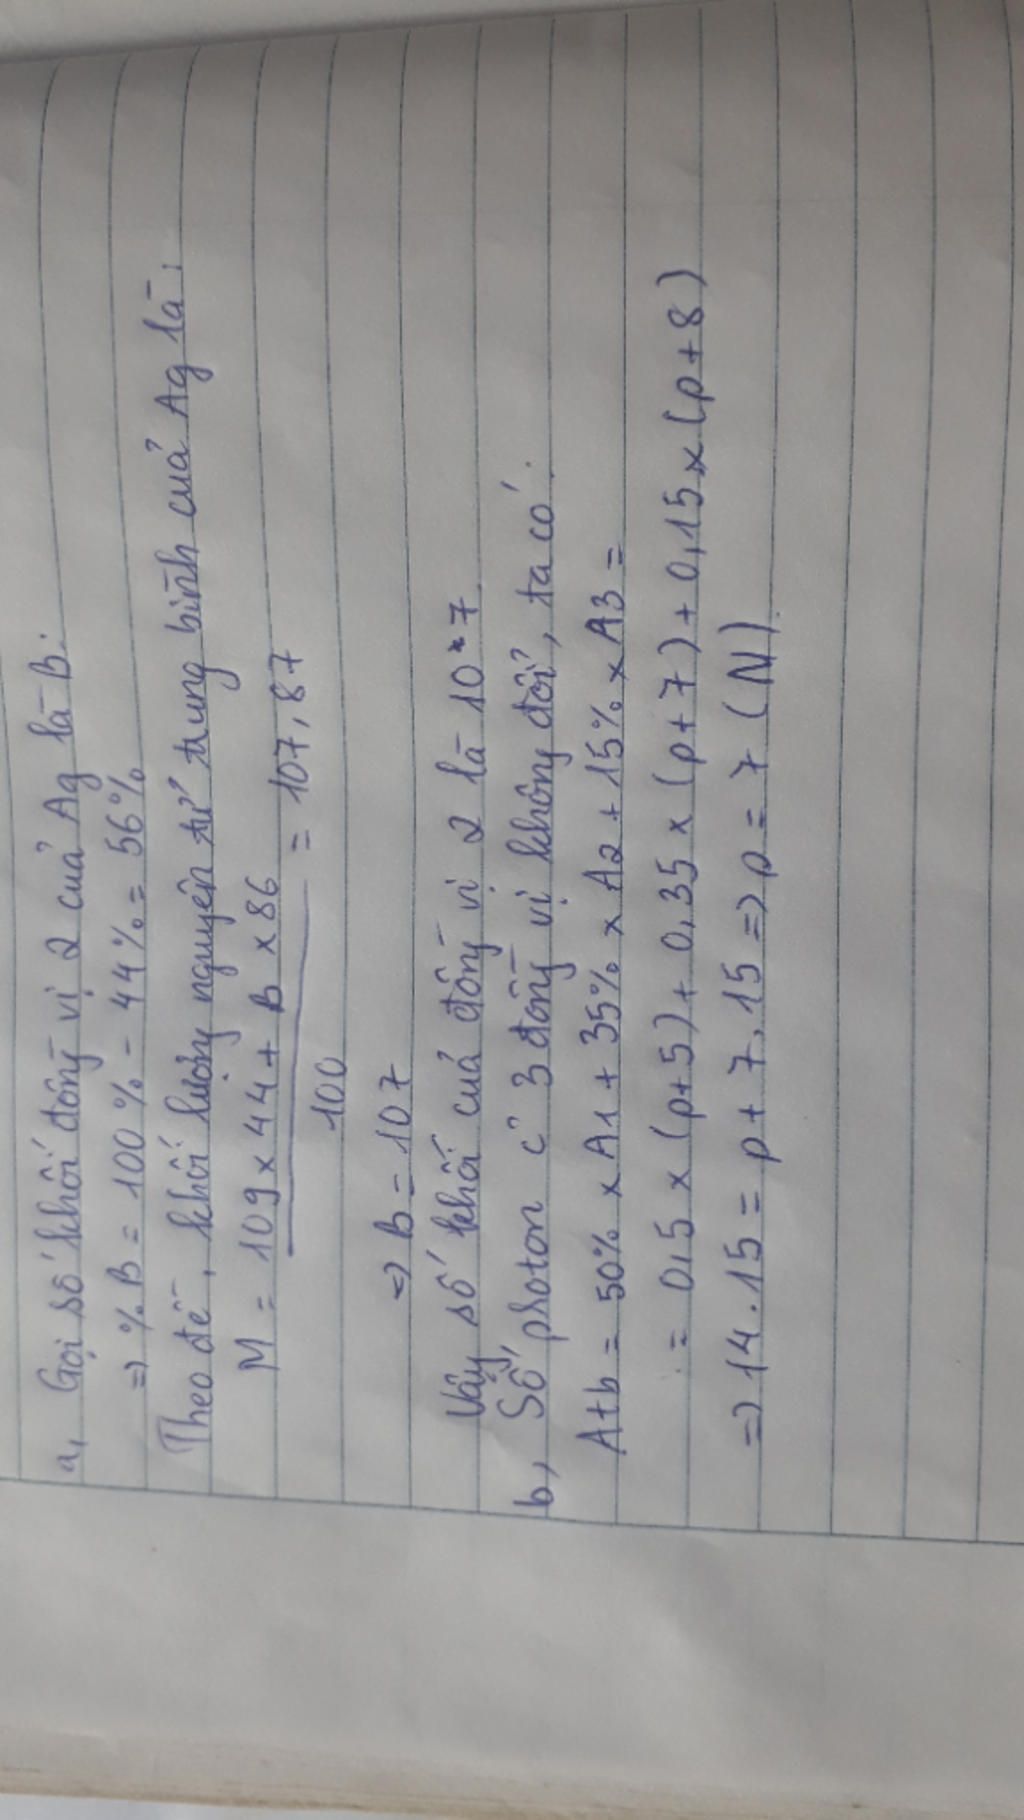 a, Gọi số khối đồng vị 2 của Ag là B.
=> % B = 100 % - 44 % = 56 %
Theo đề, khối lượng nguyên tử trung bình của Ag là:
M = 109 x 44 + B x 86 = 107,87
100
=> B = 107
Vậy số khối của đồng vị 2 là 10*7.
b, Số proton c 3 đồng vị không đổi, ta có.
Atb = 50% x A1 + 35% x A2 + 15% x A3 =
= 0,5 x (p+5) + 0,35 x (p+7) + 0,15 x (p+8)
=> 14.15 = p + 7,15 => p = 7 (N)